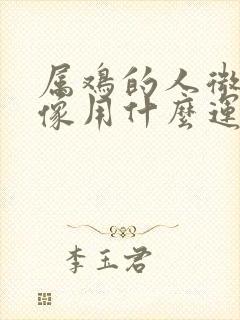 属鸡的人微
像用什麼運
李玉君